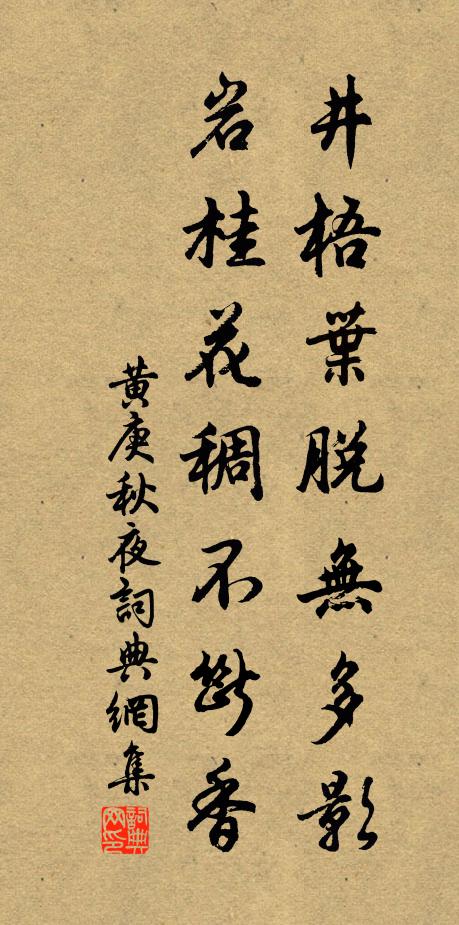 井梧葉脱無多影
岩桂花稠不斷香
黄庚秋夜詞典網集
詞典網印